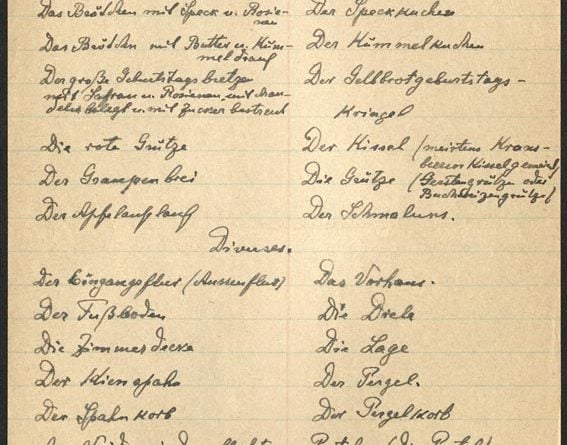 Das Brötchen mit Speck u. Rosie- Der Speckkuchen
nen
Das Brötchn mit Butter u. Küm- Der Kümmelkuchen
mel drauf
Der große Geburtstagsbretzel Der Gelbbrotgeburtstags-
mit Safran u. Rosienen, mit Man- Kringel
deln belegt u. mit Zucker bestreut
Die rote Grütze Der Kissel (meistens Krans-
beeren Kissel gemeint)
Der Graupenbrei Die Grütze (Gerstengrütze oder
Buchweizengrütze)
Der Apfelauflauf Der Schmaluns.
Diverses.
Der Eingangsflur (Aussenflur) Das Vorhaus.
Der Fußboden Die Diele
Die Zimmerdecke Die Lage
Der Kienspahn Der Pergel.
Der Spahnkorb Der Pergelkorb